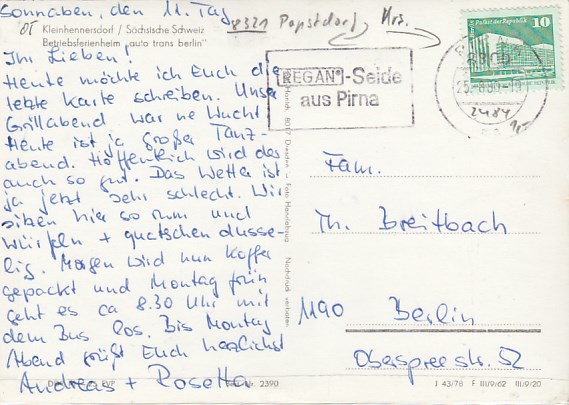 Sonnabend, den 11. Tag
OT Kleinhennersdorf / Sächsische Schweiz
Betriebsferienheim „auto trans berlin"
8321 Papstdorf, Krs.
Ihr Lieben!
Heute möchte ich Euch die
letzte Karte schreiben. Unser
Grillabend war ne Wucht.
Heute ist ja großer Tanz-
abend. Hoffentlich wird das
auch so gut. Das Wetter ist
ja jetzt sehr schlecht. Wir
sitzen hier so rum und
würfeln + quatschen dusse-
lig. Morgen wird nun Koffer
gepackt und Montag früh
geht es ca 8.30 Uhr mit
dem Bus los. Bis Montag
Abend grüßt Euch herzlichst
Andreas + Rosetta
REGAN-Seide
aus Pirna
10
Palast der Republik
8300
2484
8017 Dresden – Foto Hannishaug Nachdruck verboten
Fam.
Th. Breitbach
1190 Berlin
Oberspreestr. 52
EVP
Best.-Nr. 2390
J 43/78 F III/9/62 III/9/20